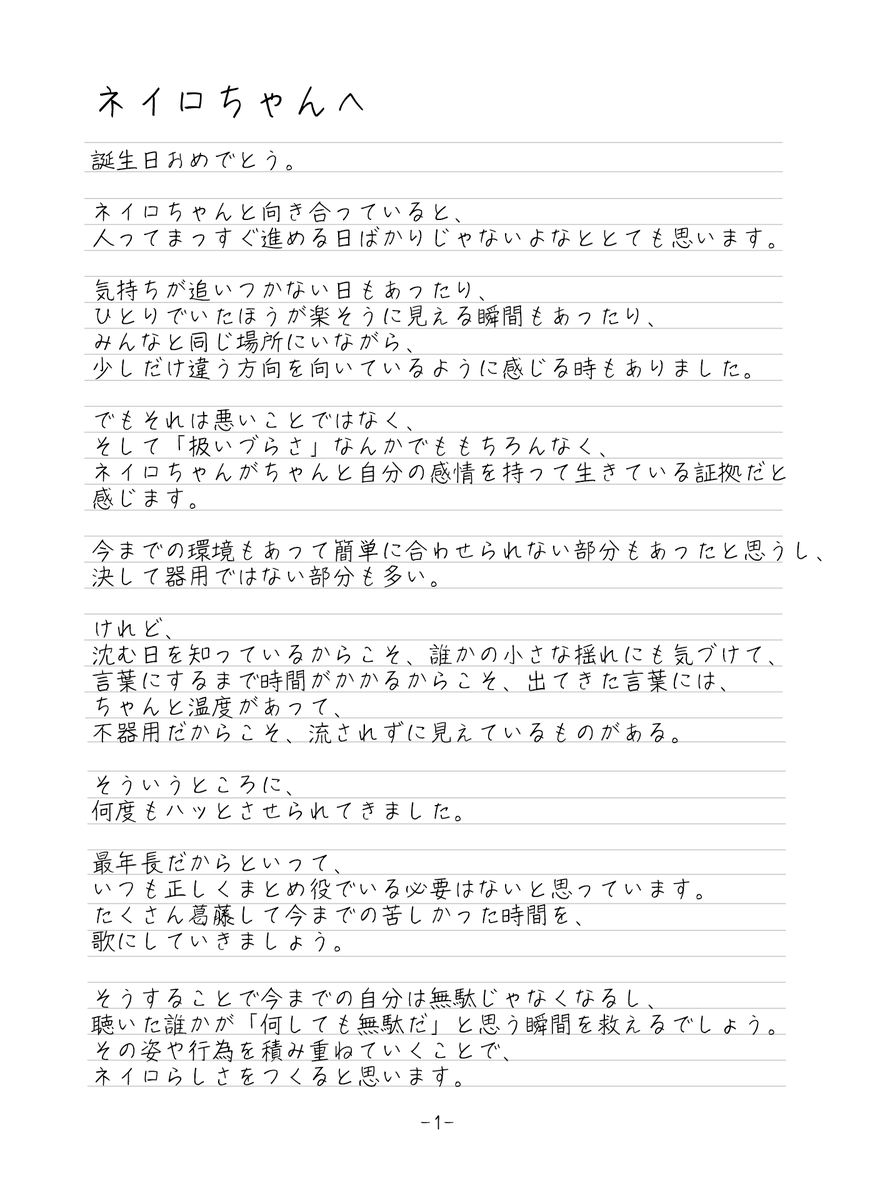 ネイロちゃんへ
誕生日おめでとう。
ネイロちゃんと向き合っていると、
人ってまっすぐ進める日ばかりじゃないよなととても思います。
気持ちが追いつかない日もあったり、
ひとりでいたほうが楽そうに見える瞬間もあったり、
みんなと同じ場所にいながら、
少しだけ違う方向を向いているように感じる時もありました。
でもそれは悪いことではなく、
そして「扱いづらさ」なんかでももちろんなく、
ネイロちゃんがちゃんと自分の感情を持って生きている証拠だと
感じます。
今までの環境もあって簡単に合わせられない部分もあったと思うし、
決して器用ではない部分も多い。
けれど、
沈む日を知っているからこそ、誰かの小さな揺れにも気づけて、
言葉にするまで時間がかかるからこそ、出てきた言葉には、
ちゃんと温度があって、
不器用だからこそ、流されずに見えているものがある。
そういうところに、
何度もハッとさせられてきました。
最年長だからといって、
いつも正しくまとめ役でいる必要はないと思っています。
たくさん葛藤して今までの苦しかった時間を、
歌にしていきましょう。
そうすることで今までの自分は無駄じゃなくなるし、
聴いた誰かが「何しても無駄だ」と思う瞬間を救えるでしょう。
その姿や行為を積み重ねていくことで、
ネイロらしさをつくると思います。
-1-